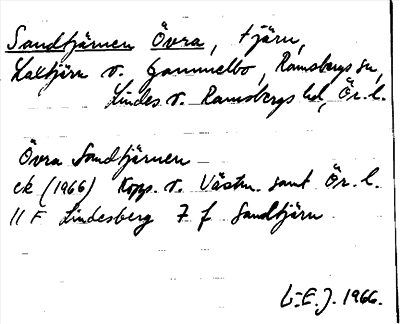 Sandtjärnen Övra, tjärn,
Laxtjärn v. Gammelbo, Ramsbergs sn,
Lindes o. Ramsbergs hd, Ör. l.
Övra Sandtjärnen
ek (1966) Kopp. o. Västm. samt Ör. l.
11 F Lindesberg 7 f Sandtjärn
L-E. J. 1966.